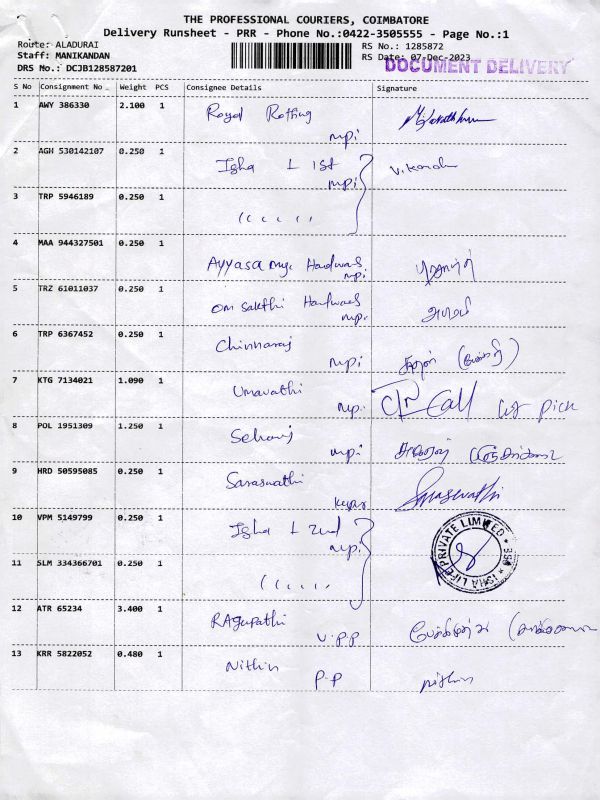 THE PROFESSIONAL COURIERS, COIMBATORE
Delivery Runsheet - PRR - Phone No.:0422-3505555 - Page No.:1
Route: ALADURAI
Staff: MANIKANDAN
DRS No.: DCJB128587201
RS No.: 1285872
RS Date: 07-Dec-2023
DOCUMENT DELIVERY
S No Consignment No Weight PCS Consignee Details Signature
1 AWY 386330 2.100 1 Royal
mpi
2 AGH 530142107 0.250 1 Isha L 1st
mpi
3 TRP 5946189 0.250 1
4 MAA 944327501 0.250 1 Ayyasamy Hardwares
mpi
5 TRZ 61011037 0.250 1 Om Sakthi Hardwares
mpi
6 TRP 6367452 0.250 1 Chinnaraj
mpi
7 KTG 7134021 1.090 1 Umavathi
mpi Call pick
8 POL 1951309 1.250 1 Selvaraj
mpi
9 HRD 50595085 0.250 1 Saraswathi
Saraswathi
10 VPM 5149799 0.250 1 Isha L 2nd
mpi
ISHA LIFE PRIVATE LIMITED
11 SLM 334366701 0.250 1
12 ATR 65234 3.400 1 RAgupathi
V.P.P
13 KRR 5822052 0.480 1 Nithin
P.P nithin